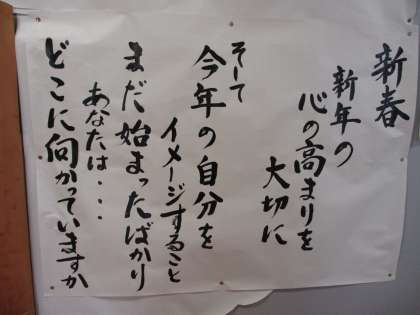 新春
新年の
心の高まりを
大切に
そして
今年の自分を
イメージすること
まだ始まったばかり
あなたは・・・
どこに向かっていますか